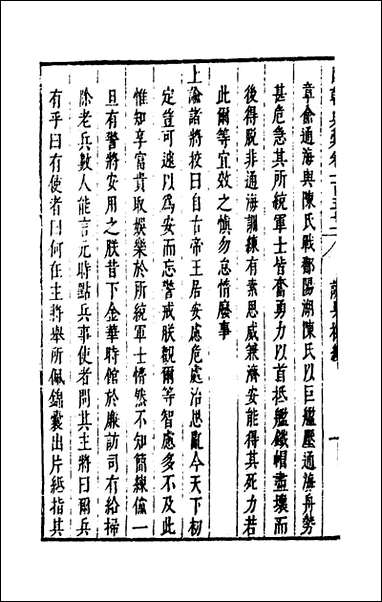 章俞通海與陳氏戰鄱陽湖陳氏以巨艦壓通海舟勢
甚危急其所統軍士皆奮勇力以首抵艦鐵帽盡壞而
後得脫非通海訓練有素恩威兼濟安能得其死力若
此爾等宜效之慎勿怠惰廢事
上諭諸將校曰自古帝王居安慮危處治思亂今天下初
定豈可遽以為安而忘警戒朕觀爾等智慮多不及此
惟知享富貴取娛樂於所統軍士懵然不知簡練倘一
旦有警將安用之朕昔下金華時館於廉訪司有給掃
除老兵數人能言元時點兵事使者問其主將曰爾兵
有乎曰有使者曰何在主將舉所佩錦囊出片紙指其